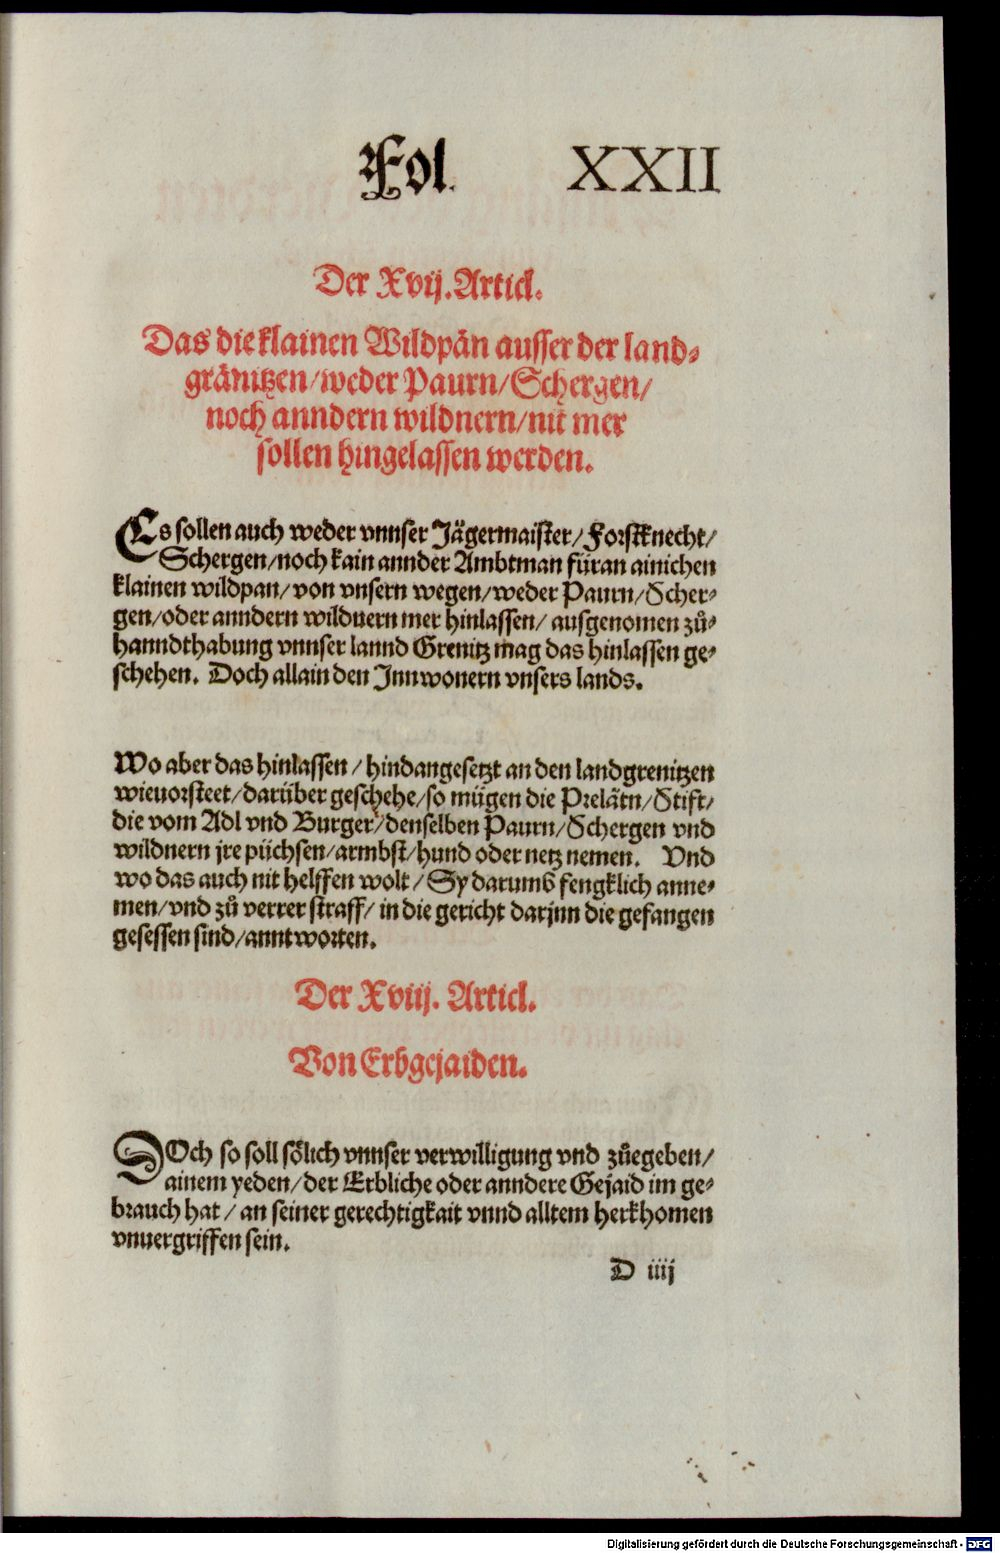 Fol. XXII
Der Xvij. Articl.
Das die klainen Wildpän ausser der land⸗
gränitzen/weder Paurn/Schergen/
noch anndern wildnern/nit mer
sollen hingelassen werden.
Es sollen auch weder vnnser Jägermaister/Forstknecht/
Schergen/noch kain annder Ambtman füran ainichen
klainen wildpan/von vnsern wegen/weder Paurn/Scher⸗
gen/oder anndern wildnern mer hinlassen/ausgenomen zů⸗
hanndthabung vnnser lannd Grenitz mag das hinlassen ge⸗
schehen. Doch allain den Innwonern vnsers lands.
Wo aber das hinlassen/hindangesetzt an den landgrenitzen
wieuorsteet/darüber geschehe/so mügen die Prelätn/Stift/
die vom Adl vnd Burger/denselben Paurn/Schergen vnd
wildnern jre püchsen/armbst/hund oder netz nemen. Vnd
wo das auch nit helffen wolt/Sy darumb fengklich anne⸗
men/vnd zů verrer straff/in die gericht darjnn die gefangen
gesessen sind/anntworten.
Der Xviij. Articl.
Von Erbgejaiden.
DOch so soll sölich vnnser verwilligung vnd zůegeben/
ainem yeden/der Erbliche oder anndere Gejaid im ge⸗
brauch hat/an seiner gerechtigkait vnnd alltem herkhomen
vnuergriffen sein.
D iiij
Digitalisierung gefördert durch die Deutsche Forschungsgemeinschaft - DFG